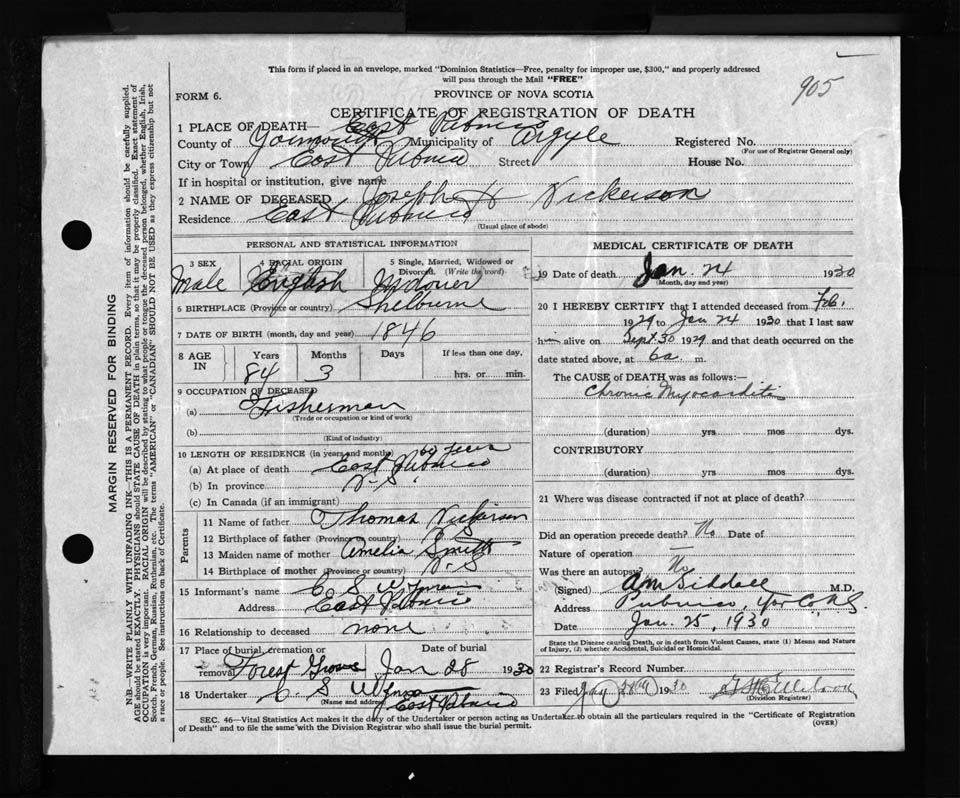 905
This form if placed in an envelope, marked "Dominion Statistics—Free, penalty for improper use, $300," and properly addressed
will pass through the Mail "FREE"
FORM 6.
PROVINCE OF NOVA SCOTIA
CERTIFICATE OF REGISTRATION OF DEATH
1 PLACE OF DEATH— East Pubnico
County of Yarmouth Municipality of Argyle Registered No.
(For use of Registrar General only)
City or Town East Pubnico Street House No.
If in hospital or institution, give name
2 NAME OF DECEASED Joseph H Nickerson
Residence East Pubnico
(Usual place of abode)
PERSONAL AND STATISTICAL INFORMATION
3 SEX 4 RACIAL ORIGIN 5 Single, Married, Widowed or Divorced. (Write the word)
Male English
6 BIRTHPLACE (Province or country) Shelburne
7 DATE OF BIRTH (month, day and year) 1846
8 AGE IN Years Months Days If less than one day,
84 3 hrs. or min.
9 OCCUPATION OF DECEASED
(a) Fisherman
(Trade or occupation or kind of work)
(b)
(Kind of industry)
10 LENGTH OF RESIDENCE (in years and months) 60 years
(a) At place of death East Pubnico
(b) In province N.S.
(c) In Canada (if an immigrant)
Parents
11 Name of father Thomas Nickerson
12 Birthplace of father (Province or country) N.S.
13 Maiden name of mother Amelia Smith
14 Birthplace of mother (Province or country) N.S
15 Informant's name C S Wyman
Address East Pubnico
16 Relationship to deceased none
17 Place of burial, cremation or removal Date of burial
Forest Grove Jan 28 1930
18 Undertaker C. S Wyman
(Name and address) East Pubnico
MEDICAL CERTIFICATE OF DEATH
19 Date of death Jan. 24 1930
(Month, day and year)
20 I HEREBY CERTIFY that I attended deceased from Feb.
1929 to Jan 24 1930 that I last saw
him alive on Sept. 30 1929 and that death occurred on the
date stated above, at 6a. m.
The CAUSE of DEATH was as follows:
Chronic Myocarditis
(duration) yrs mos dys.
CONTRIBUTORY
(duration) yrs mos dys.
21 Where was disease contracted if not at place of death?
Did an operation precede death? No Date of
Nature of operation
Was there an autopsy? No
(Signed) Siddall M.D.
Address Pubnico, Yar. Co., N.S.
Date Jan. 25, 1930
State the Disease causing Death, or in death from Violent Causes, state (1) Means and Nature
of Injury, (2) whether Accidental, Suicidal or Homicidal.
22 Registrar's Record Number
23 Filed 1930
(Division Registrar)
SEC. 46—Vital Statistics Act makes it the duty of the Undertaker or person acting as Undertaker to obtain all the particulars required in the "Certificate of Registration
of Death" and to file the same with the Division Registrar who shall issue the burial permit.
(OVER)
MARGIN RESERVED FOR BINDING
N.B.—WRITE PLAINLY WITH UNFADING INK—THIS IS A PERMANENT RECORD. Every item of information should be carefully supplied.
AGE should be stated EXACTLY. PHYSICIANS should STATE CAUSE OF DEATH in plain terms, so that it may be properly classified. Exact statement of
OCCUPATION is very important. RACIAL ORIGIN will be described by stating to what people or tongue the deceased person belonged, whether English, Irish,
Scotch, French, German, Russian, Ruthenian, etc. The terms "AMERICAN" or "CANADIAN" SHOULD NOT BE USED as they express citizenship but not
a race or people. See instructions on back of Certificate.